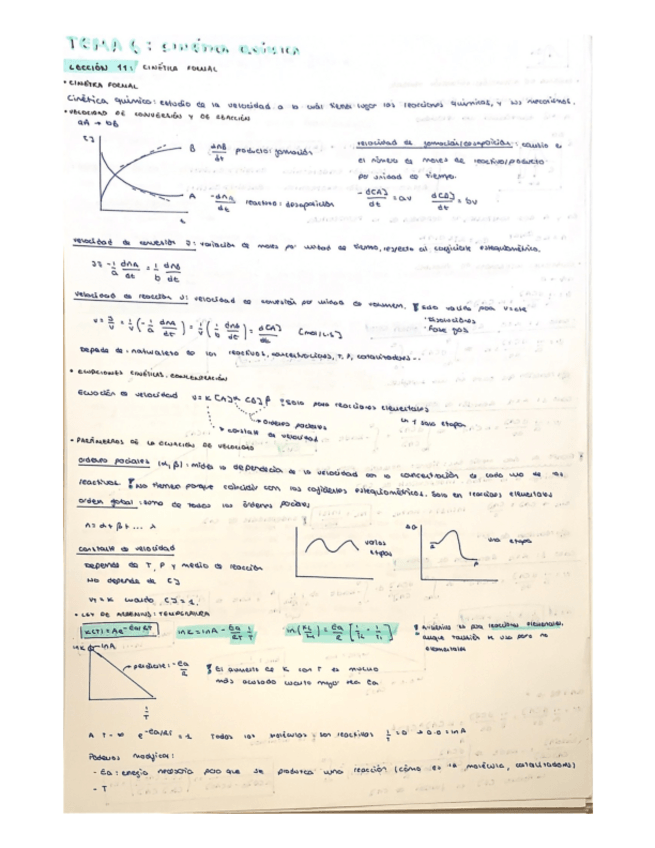 TEMA 6: CINÉTICA QUÍMICA
LECCIÓN 11: CINÉTICA FORMAL
• CINÉTICA FORMAL
Cinética química: estudio de la velocidad a la cual tienen lugar las reacciones químicas, y sus mecanismos.
• VELOCIDAD DE CONVERSIÓN Y DE REACCIÓN
aA → bB
[ ]
B dnB/dt producto: formación
A -dnA/dt reactivo: desaparición
t
velocidad de formación/desaparición: cambio en
el número de moles de reactivo/producto
por unidad de tiempo.
-d[A]/dt = av d[B]/dt = bv
velocidad de conversión J: variación de moles por unidad de tiempo, respecto al coeficiente estequiométrico.
J = -1/a dnA/dt = 1/b dnB/dt
velocidad de reacción v: velocidad de conversión por unidad de volumen. Solo válido para V=cte
· Disoluciones
· Fase gas
v = J/V = 1/V (-1/a dnA/dt) = 1/V (1/b dnB/dt) = d[A]/dt [mol/L·s]
Depende de: naturaleza de los reactivos, concentraciones, T, P, catalizadores...
• ECUACIONES CINÉTICAS: CONCENTRACIÓN
Ecuación de velocidad v = k [A]α [B]β Solo para reacciones elementales
en 1 sola etapa
órdenes parciales
constante de velocidad
• PARÁMETROS DE LA ECUACIÓN DE VELOCIDAD
órdenes parciales (α, β): miden la dependencia de la velocidad con la concentración de cada uno de los
reactivos. No tienen porque coincidir con los coeficientes estequiométricos. Solo en reacciones elementales
orden global: suma de todos los órdenes parciales
n = α + β + ... λ
constante de velocidad
Depende de T, P y medio de reacción
No depende de [ ]
v = k cuando [ ] = 1
varias etapas
una etapa
R
P
• LEY DE ARRHENIUS: TEMPERATURA
k(T) = Ae^-Ea/RT
ln k = ln A - Ea/R 1/T
ln(k2/k1) = Ea/R [1/T2 - 1/T1]
Arrhenius es para reacciones elementales,
aunque también se usa para no
elementales
ln k
ln A
pendiente: -Ea/R
1/T
El aumento de k con T es mucho
más acusado cuanto mayor sea Ea
A T = ∞ e^-Ea/RT = 1 Todas las moléculas son reactivas 1/T = 0
Podemos modificar:
- Ea: energía necesaria para que se produzca una reacción (cómo es la molécula, catalizadores)
- T